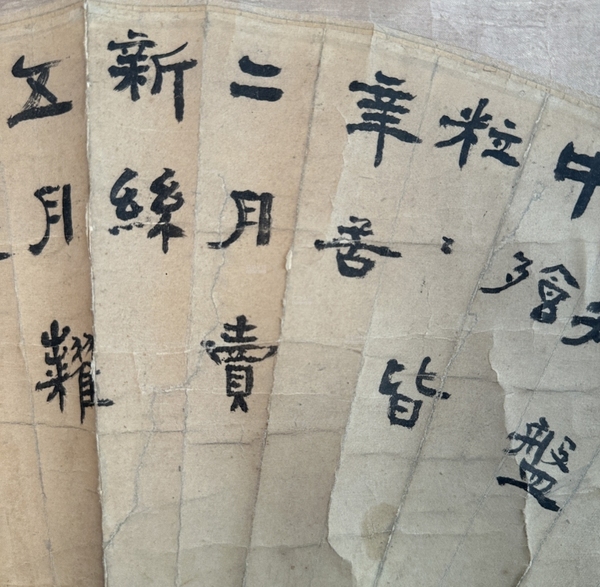 知盤
中飧
粒〻皆
辛苦
二月賣
新絲
五月糶